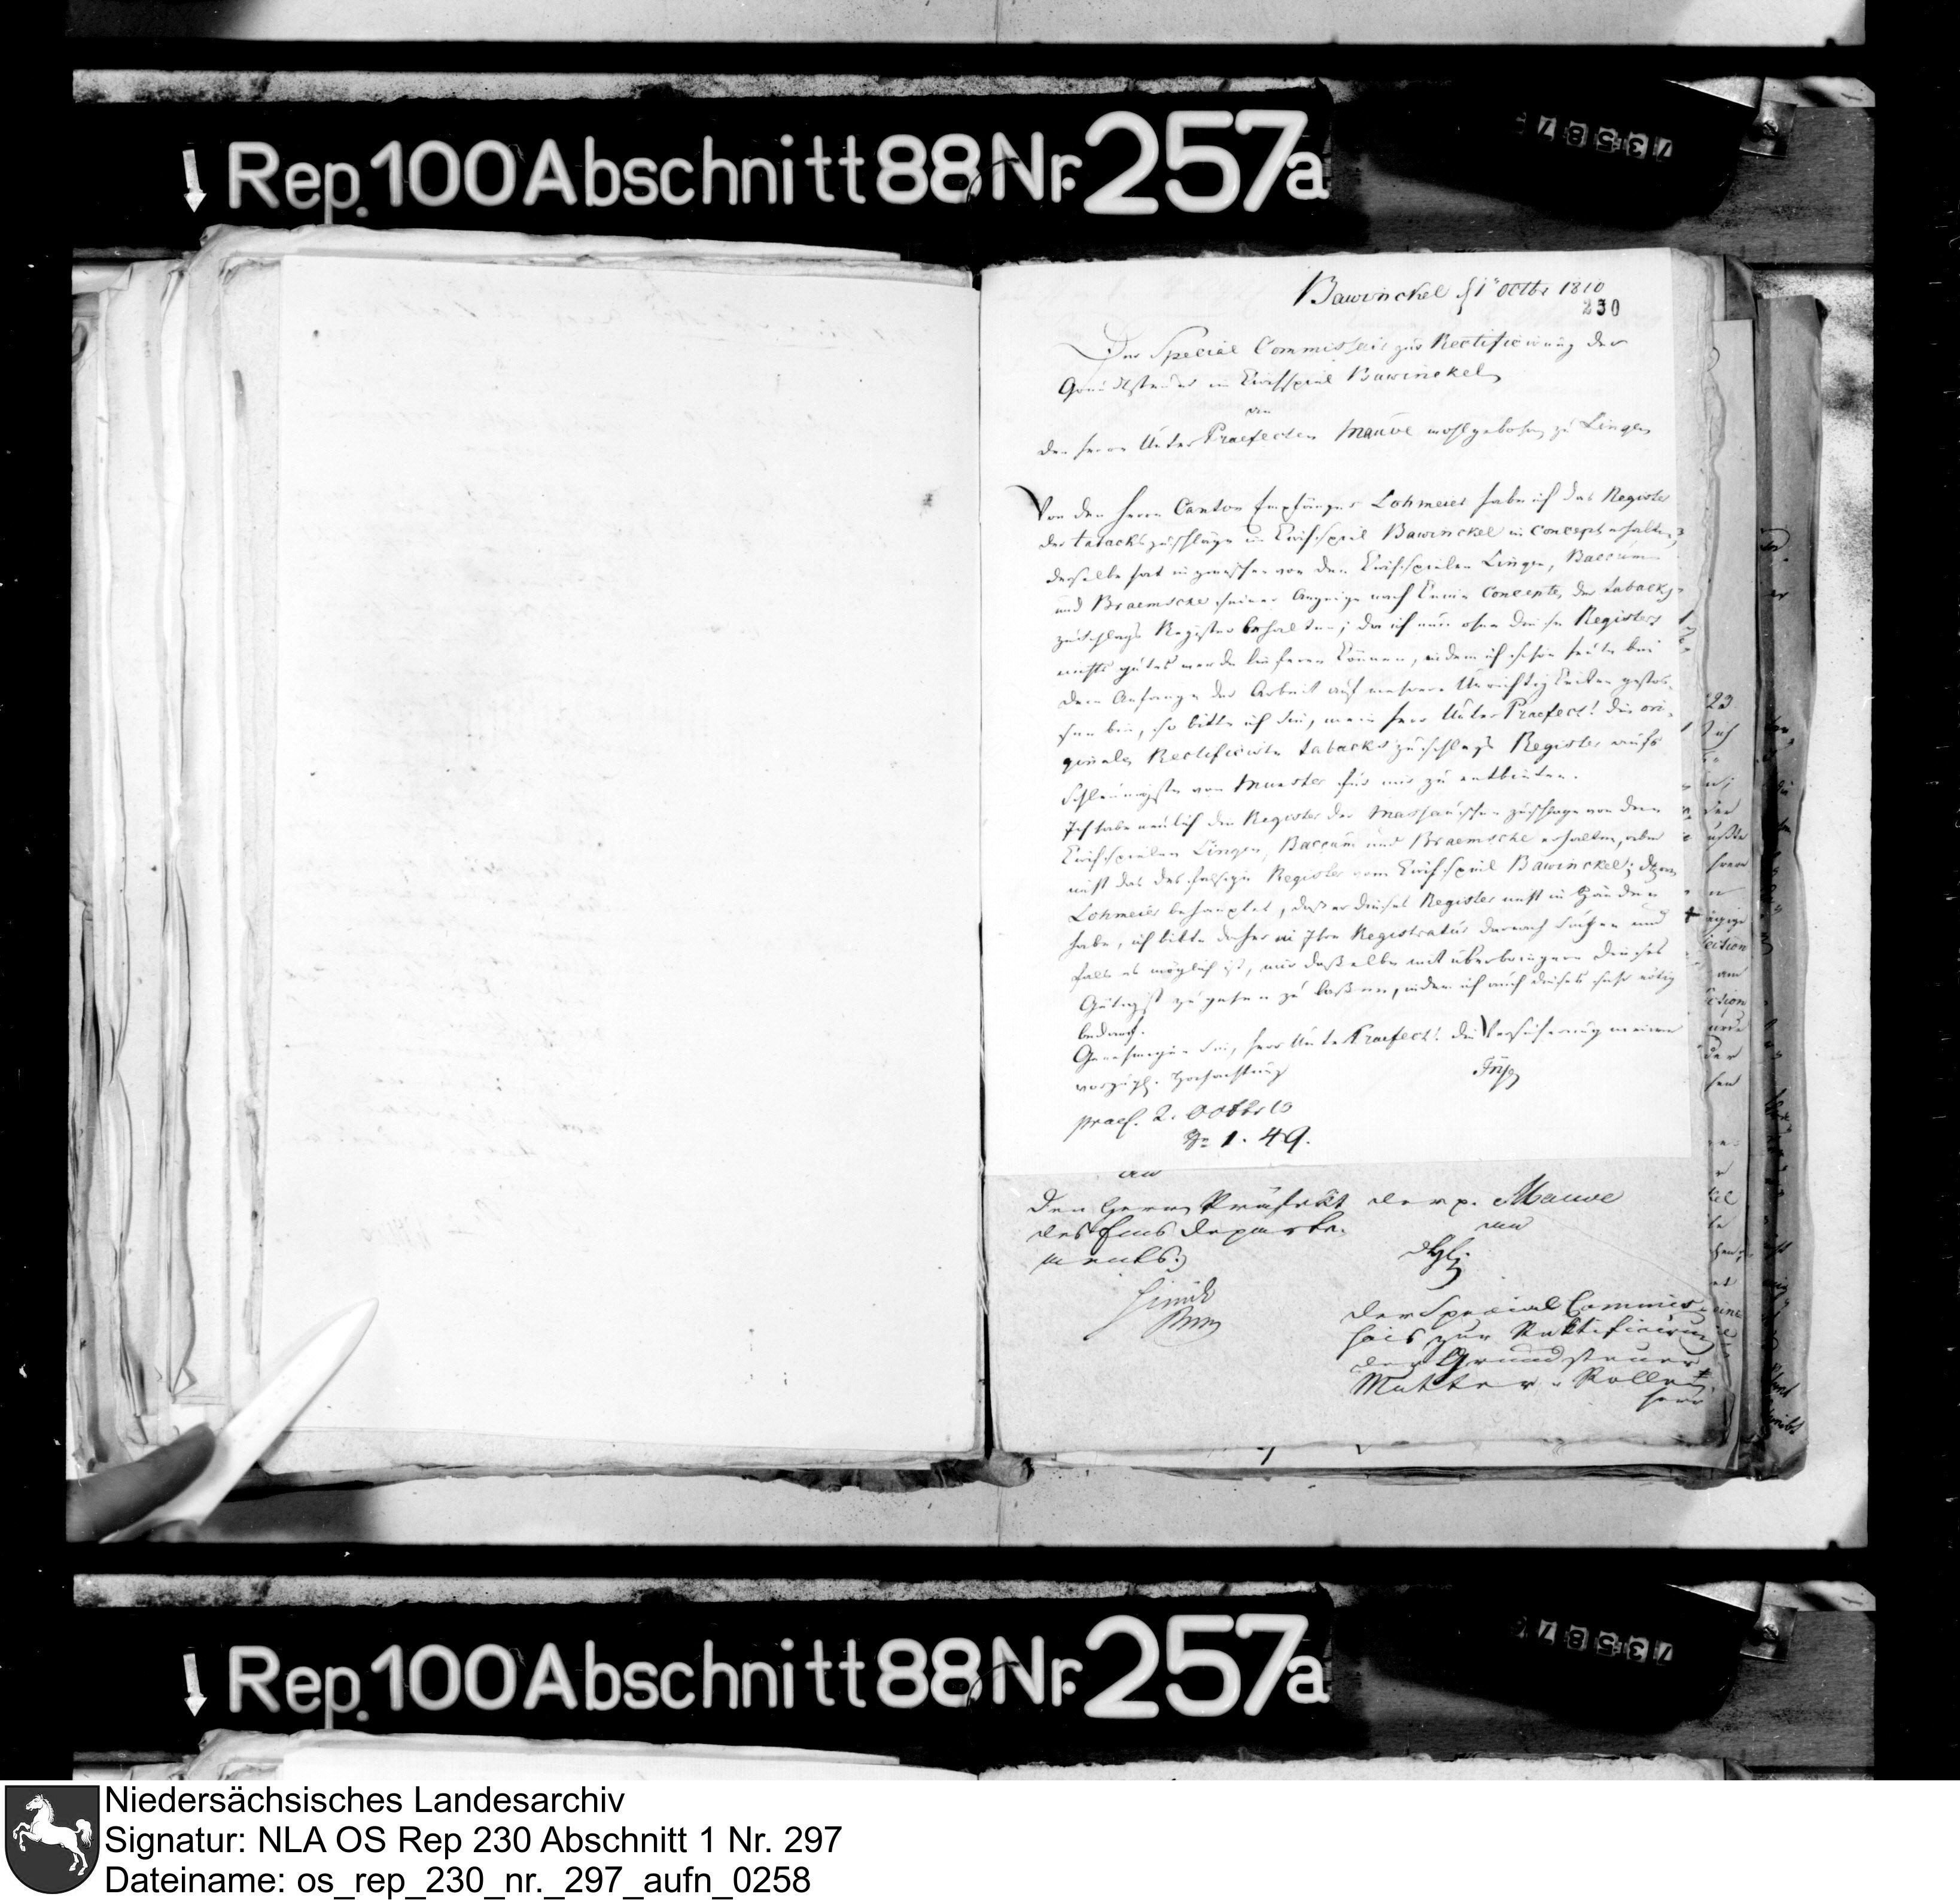 Rep. 100 Abschnitt 88 Nr. 257a
73587
Bawinckel d 1n octbr 1810
230
Der Special Commissair zur Rectificirung der
Grundsteuer im Kirchspiel Bawinckel
an
den Herrn Unter Praefecten Mauve wohlgebohrn zu Lingen
Von den Herrn Canton Empfänger Lohmeier habe ich das Register
der tabackszuschläge im Kirchspiel Bawinckel in Concept erhalten;
derselbe hat inzwischen von den Kirchspielen Lingen, Baccum
und Braemsche seiner Anzeige nach keine Concepte der tabacks-
zuschlags Register behalten; da ich nun ohne diese Registers
nichts gutes werde liefern können, indem ich schon heute bei
dem Anfange der Arbeit auf mehrere Unrichtigkeiten gestos-
sen bin, so bitte ich Sie, mein Herr Unter Praefect! die ori-
ginale Rectificirte tabacks zuschlags Register aufs
schleunigste von Munster für mir zu entbieten.
Ich habe neulich den Register der Massauischen zuschlage von den
Kirchspielen Lingen, Baccum und Braemsche erhalten, aber
nicht das desfalsige Register vom Kirchspiel Bawinckel;
Lohmeier behauptet, daß er dieses Register nicht in Händen
habe, ich bitte daher in Ihre Registratur darnach suchen und
falls es möglich ist, mir daßelbe mit überbringern dieses
Gütigst zugehen zu laßen, indem ich auch dieses sehr nötig
bedarf.
Genehmigen Sie, Herr Unter Praefect! die Versicherung meiner
vorzügl. Hochachtung
praes. 2. Octbr 10
No 1. 49.
an
Den Herrn Präfekt der p. Mauve
des Ems Departe- an
ments.
der Special Commis-
sair zur Rektificirung
der Grundsteuer
Mutter-Rolle
Herr
Rep. 100 Abschnitt 88 Nr. 257a
73587
Niedersächsisches Landesarchiv
Signatur: NLA OS Rep 230 Abschnitt 1 Nr. 297
Dateiname: os_rep_230_nr._297_aufn_0258